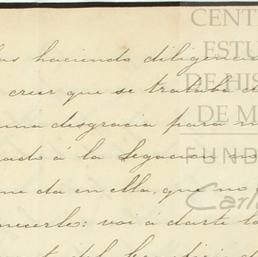 las haciendo diligencia
creer que se trataba d
una desgracia para m
ado á la Legacion no
me da en ella, que no
necerlo: voi á darte la
CENT
ESTU
DE HIS
DE M
FUND
Carlo